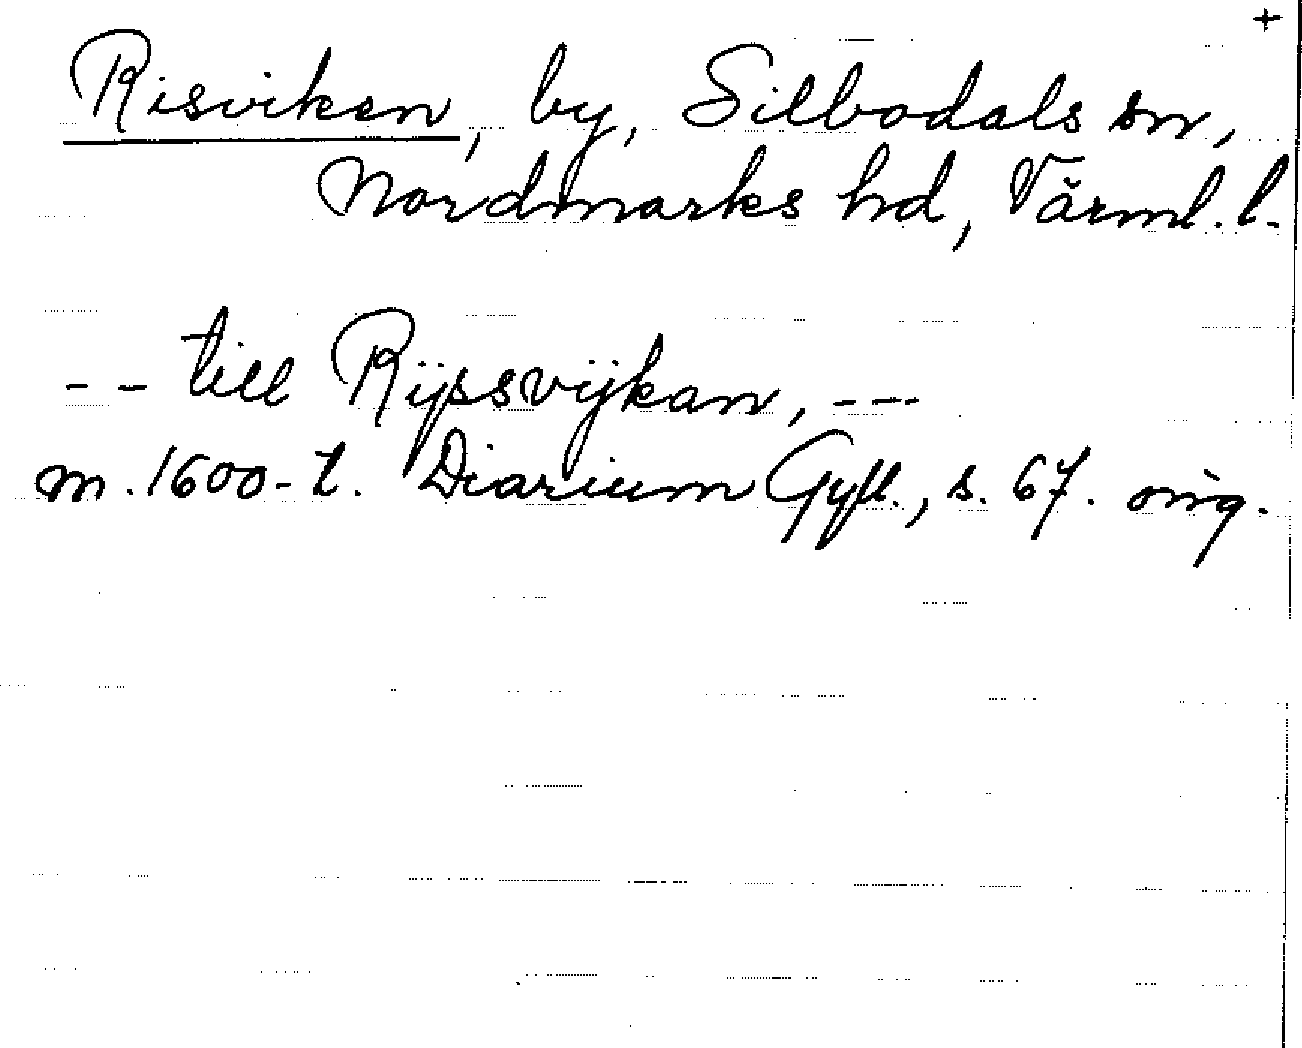 +
Risviken, by, Silbodals sn,
Nordmarks hd, Värml. l.
-- till Rijssvijkan, ---
m. 1600-t. Diarium Gyll., s. 67. orig.